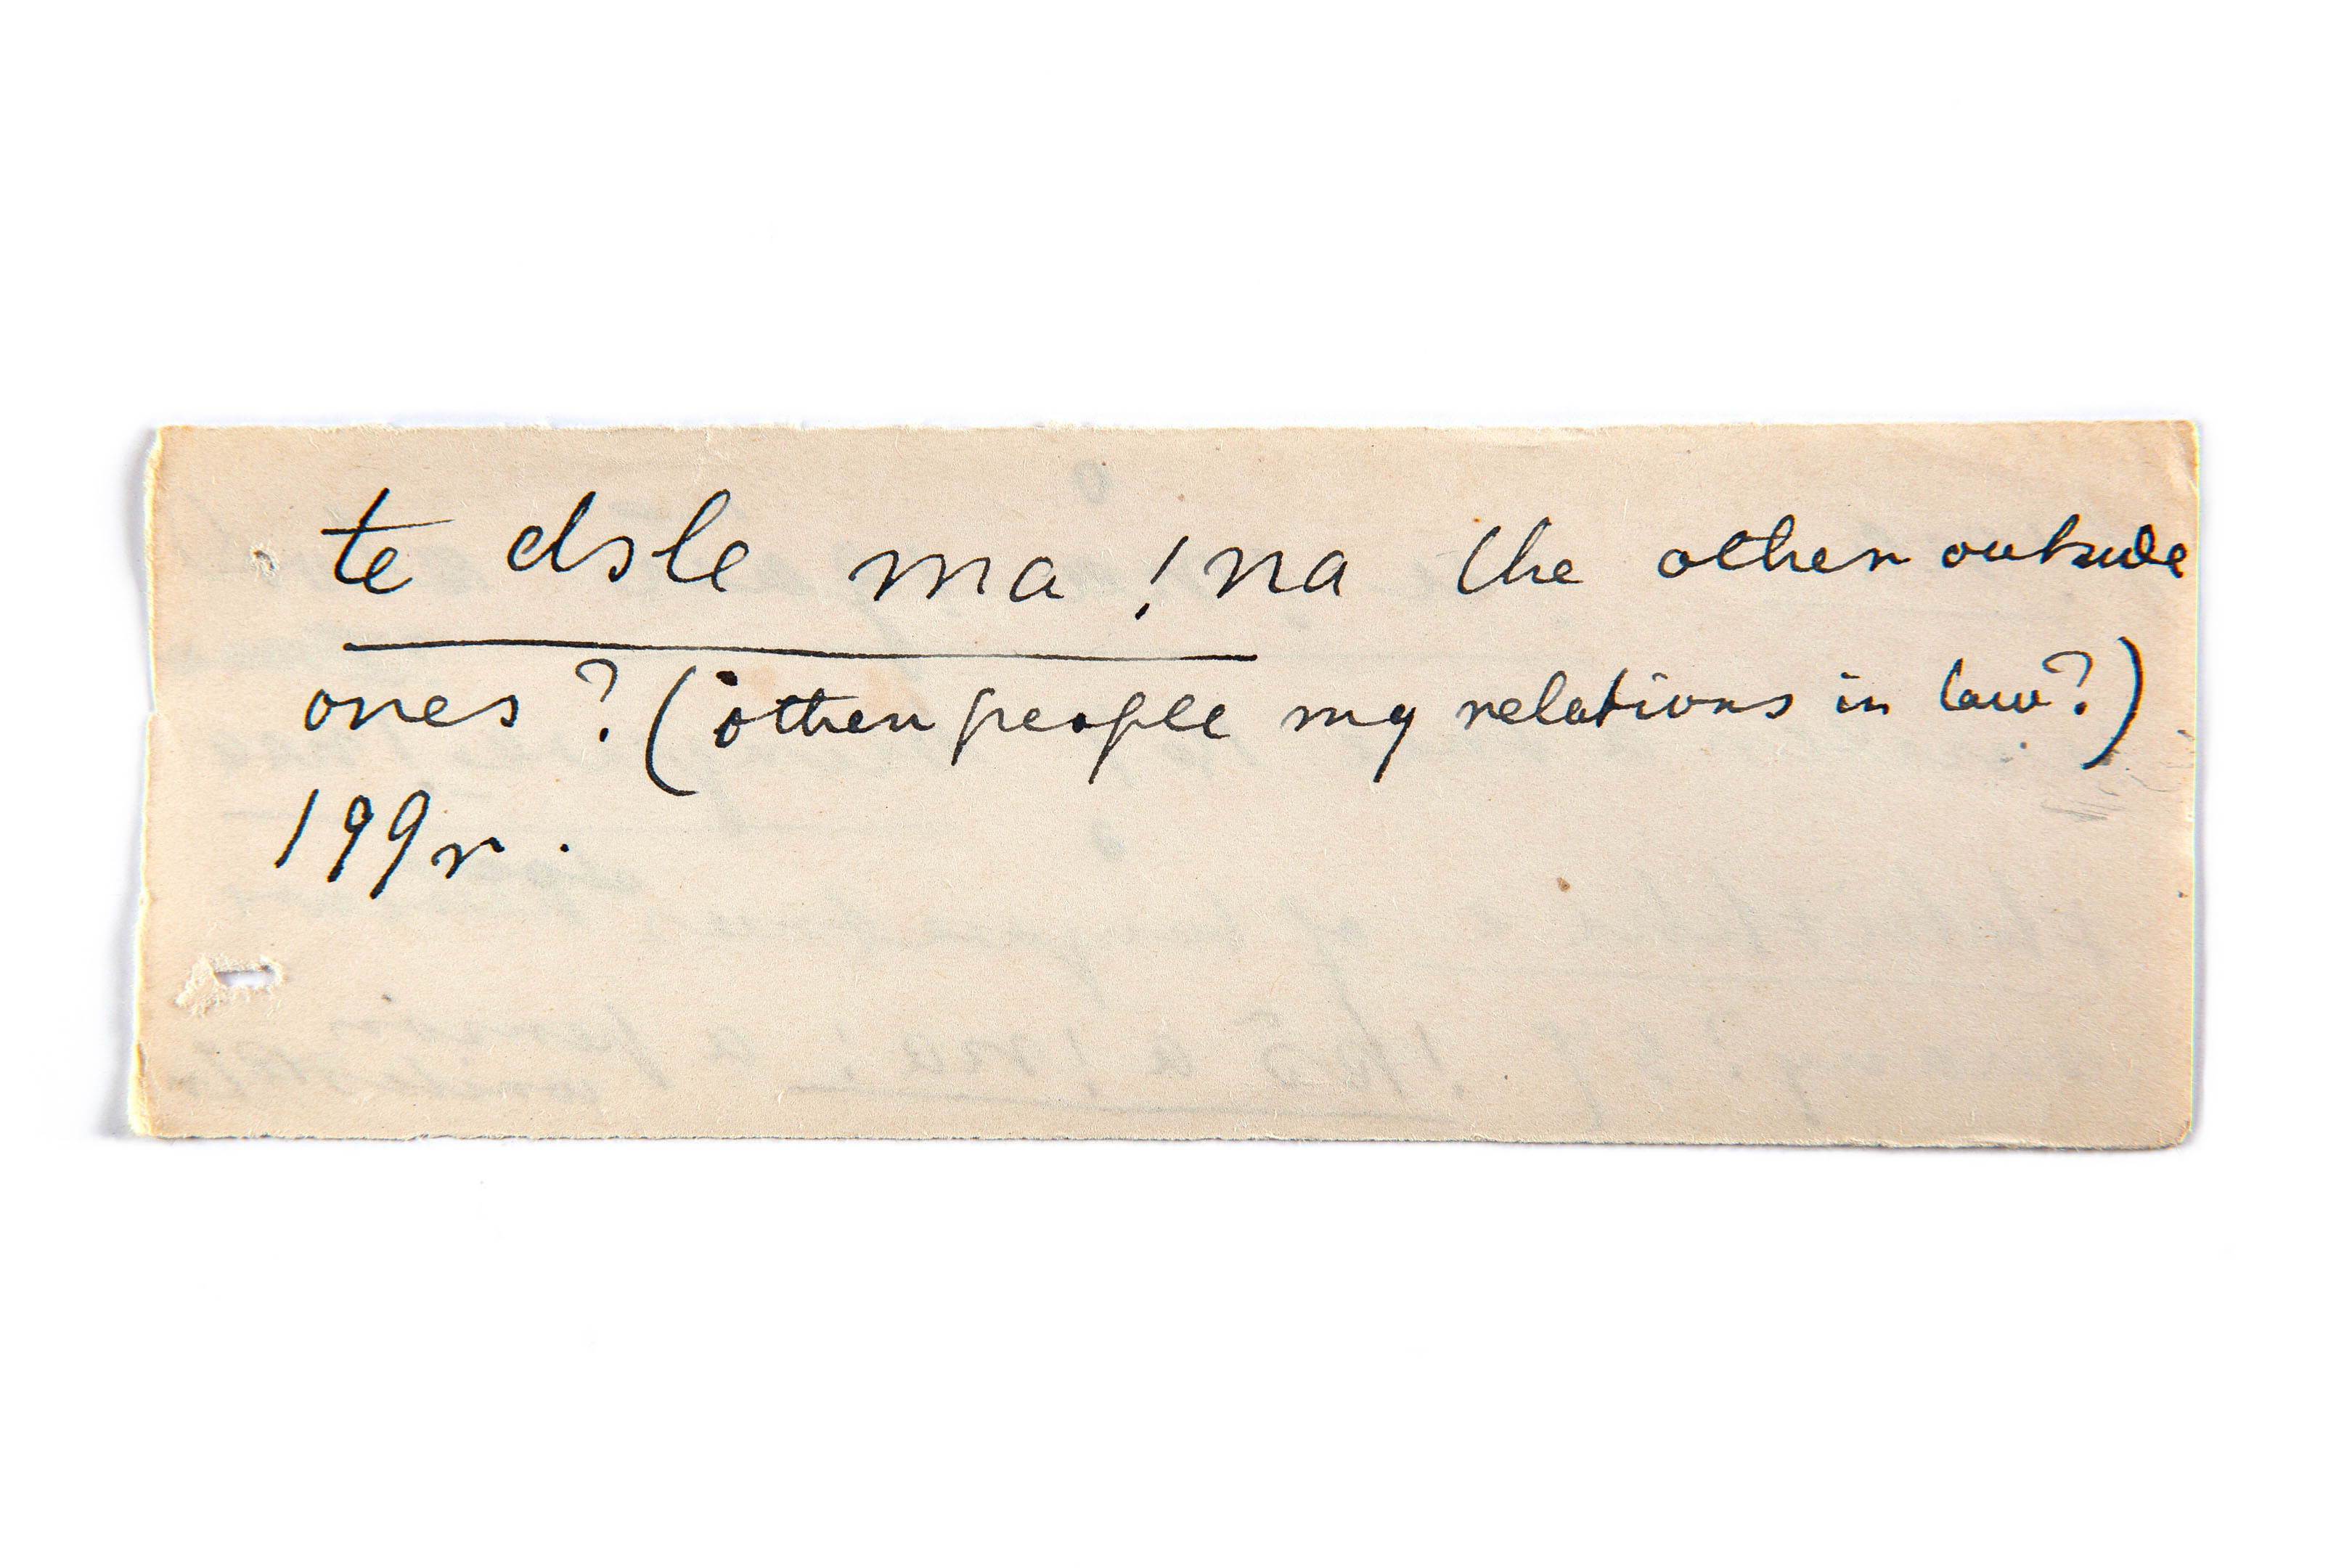 te dsle ma !na the other outside
ones? (other people my relations in law?)
199r.